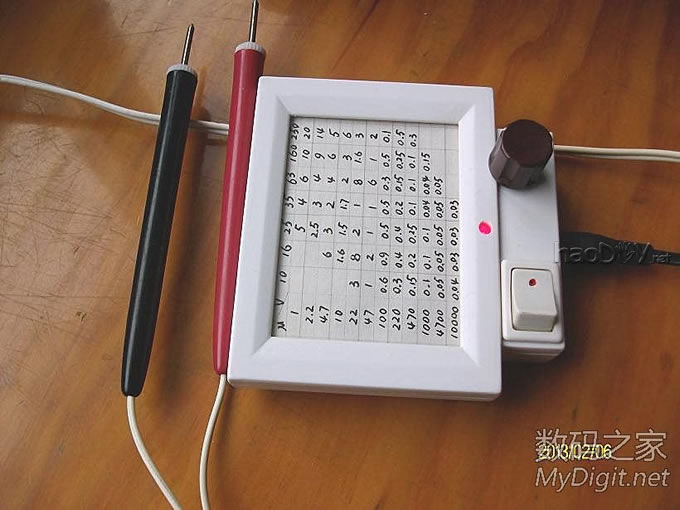 μ V 10 16 25 35 63 160 25V
1 5 4 6 10 20
2.2 2.5 3 4 9 14
4.7 6 3 2 4 5
10 1.6 1.5 1.7 2 3 6
22 3 8 2 1 8 1.6 3
47 1 2 1 1 6 1 2
100 0.6 0.9 0.5 0.5 0.3 0.5 0.1
220 0.3 0.4 0.4 0.2 0.15 0.25 0.5
470 0.15 0.2 0.25 0.1 0.1 0.3
1000 0.1 0.1 0.1 0.04 0.04 0.15
4700 0.05 0.05 0.05 0.05 0.05
10000 0.04 0.03 0.03 0.03
数码之家
2013/02/06
MyDigit.net